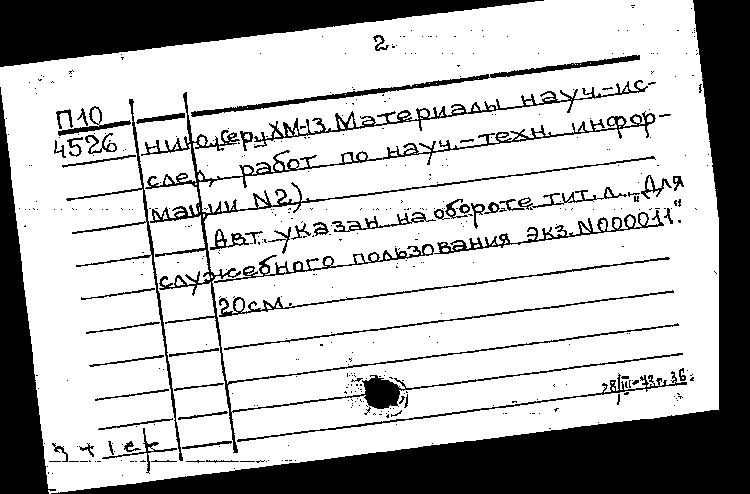 2.
П10
4526
сер., ХМ-13. Материалы науч.-ис-
след. работ по науч.-техн. инфор-
мации N2).
Авт. указан на обороте тит. л. „Для
служебного пользования Экз. N000011."
20см.
28/III-73г. 36.